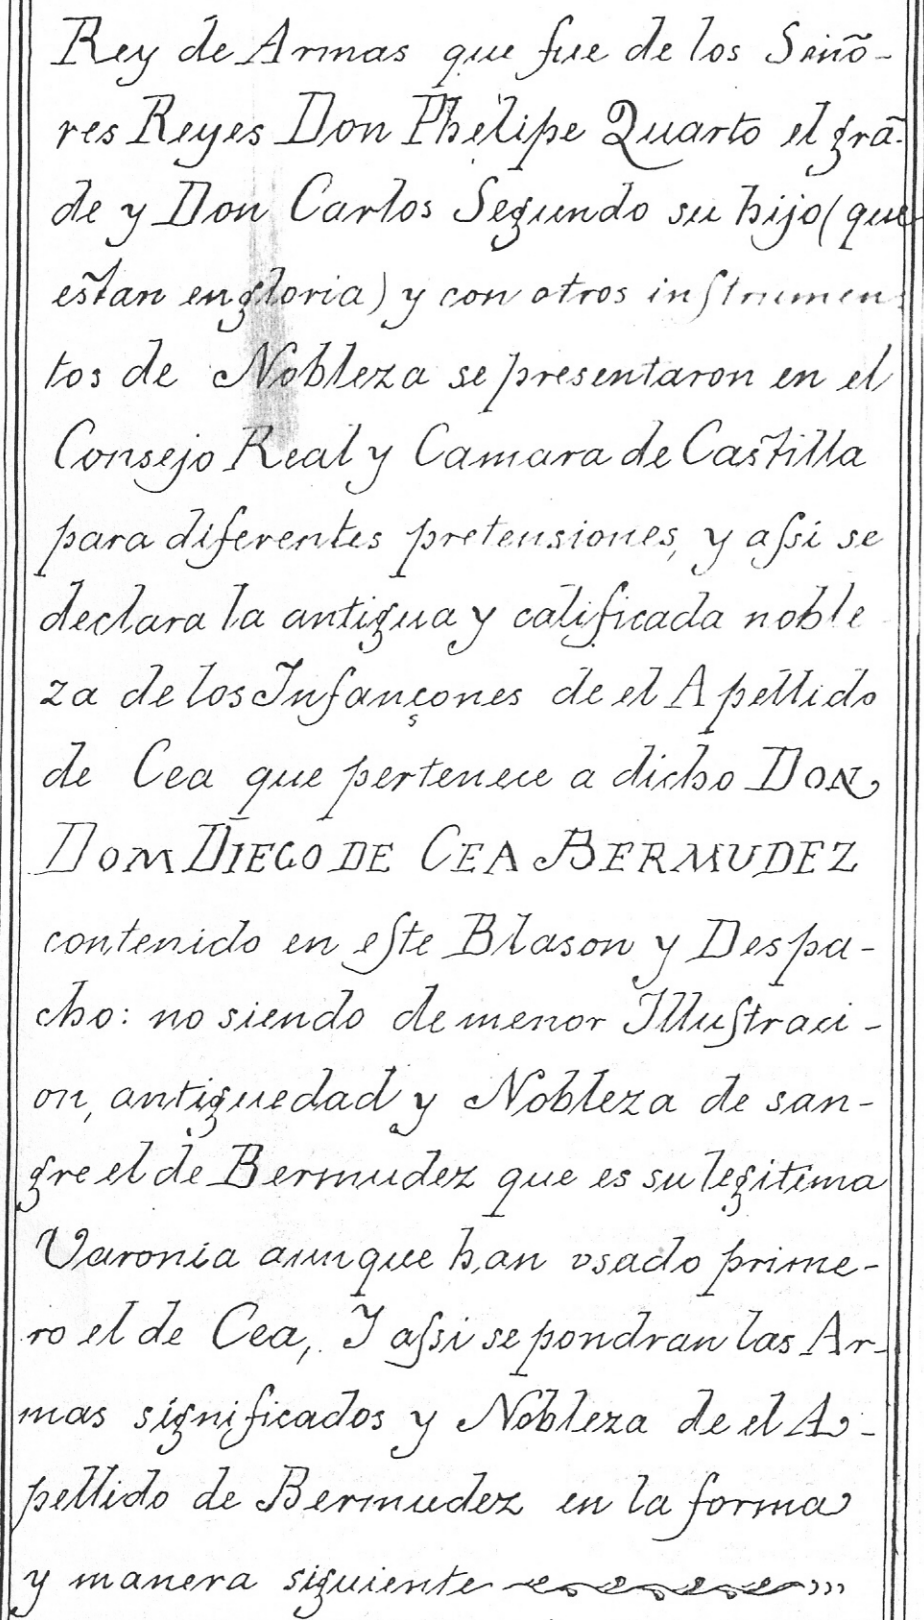 Rey de Armas que fue de los Seño-
res Reyes Don Phelipe Quarto el grã-
de y Don Carlos Segundo su hijo (que
estan en gloria) y con otros inſtrumen-
tos de Nobleza se presentaron en el
Consejo Real y Camara de Castilla
para diferentes pretensiones, y aſsi se
declara la antigua y calificada noble-
za de los Infançones de el Apellido
de Cea que pertenece a dicho DON
DOM DIEGO DE CEA BERMUDEZ
contenido en eſte Blason y Despa-
cho: no siendo de menor Illuſtraci-
on, antiguedad y Nobleza de san-
gre el de Bermudez que es su legitima
Varonia aunque han vsado prime-
ro el de Cea, Y aſsi se pondran las Ar-
mas significados y Nobleza de el A-
pellido de Bermudez en la forma
y manera siguiente